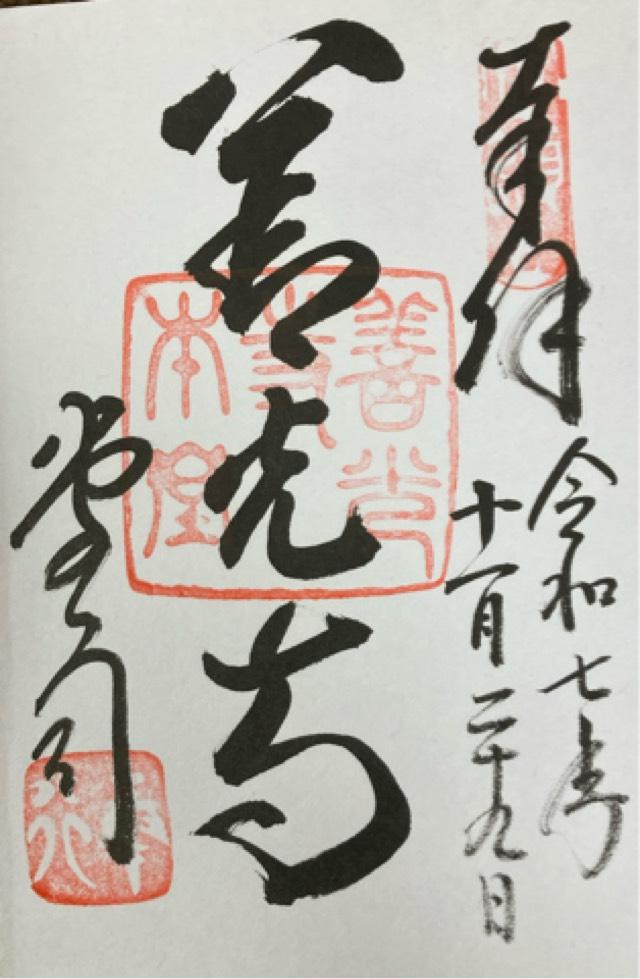 奉拝
令和七年
十一月二十九日
善光寺
善光寺本堂
堂司